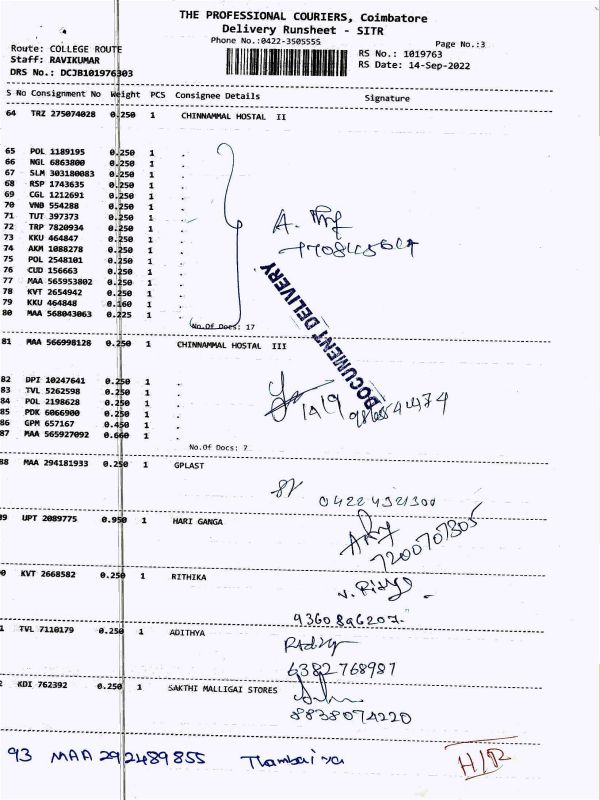 THE PROFESSIONAL COURIERS, Coimbatore
Delivery Runsheet - SITR
Phone No.:0422-3505555
Page No.:3
Route: COLLEGE ROUTE
RS No.: 1019763
Staff: RAVIKUMAR
RS Date: 14-Sep-2022
DRS No.: DCJB101976303
S No Consignment No Weight PCS Consignee Details Signature
64 TRZ 275074028 0.250 1 CHINNAMMAL HOSTAL II
65 POL 1189195 0.250 1 .
66 NGL 6863800 0.250 1 .
67 SLM 303180083 0.250 1 .
68 RSP 1743635 0.250 1 .
69 CGL 1212691 0.250 1 .
70 VNB 554288 0.250 1 .
71 TUT 397373 0.250 1 .
72 TRP 7820934 0.250 1 .
73 KKU 464847 0.250 1 .
74 AKM 1088278 0.250 1 .
75 POL 2548101 0.250 1 .
76 CUD 156663 0.250 1 .
77 MAA 565953802 0.250 1 .
78 KVT 2654942 0.250 1 .
79 KKU 464848 0.160 1 .
80 MAA 568043063 0.225 1 .
No.Of Docs: 17
DOCUMENT DELIVERY
81 MAA 566998128 0.250 1 CHINNAMMAL HOSTAL III
82 DPI 10247641 0.250 1 .
83 TVL 5262598 0.250 1 .
84 POL 2198628 0.250 1 .
85 PDK 6066900 0.250 1 .
86 GPM 657167 0.450 1 .
87 MAA 565927092 0.660 1 .
No.Of Docs: 7
88 MAA 294181933 0.250 1 GPLAST
9 UPT 2089775 0.950 1 HARI GANGA
7200707305
0 KVT 2668582 0.250 1 RITHIKA
9360896207
1 TVL 7110179 0.250 1 ADITHYA
6382768987
2 KDI 762392 0.250 1 SAKTHI MALLIGAI STORES
8838074220
93 MAA 292489855 Thambaiya
H/R